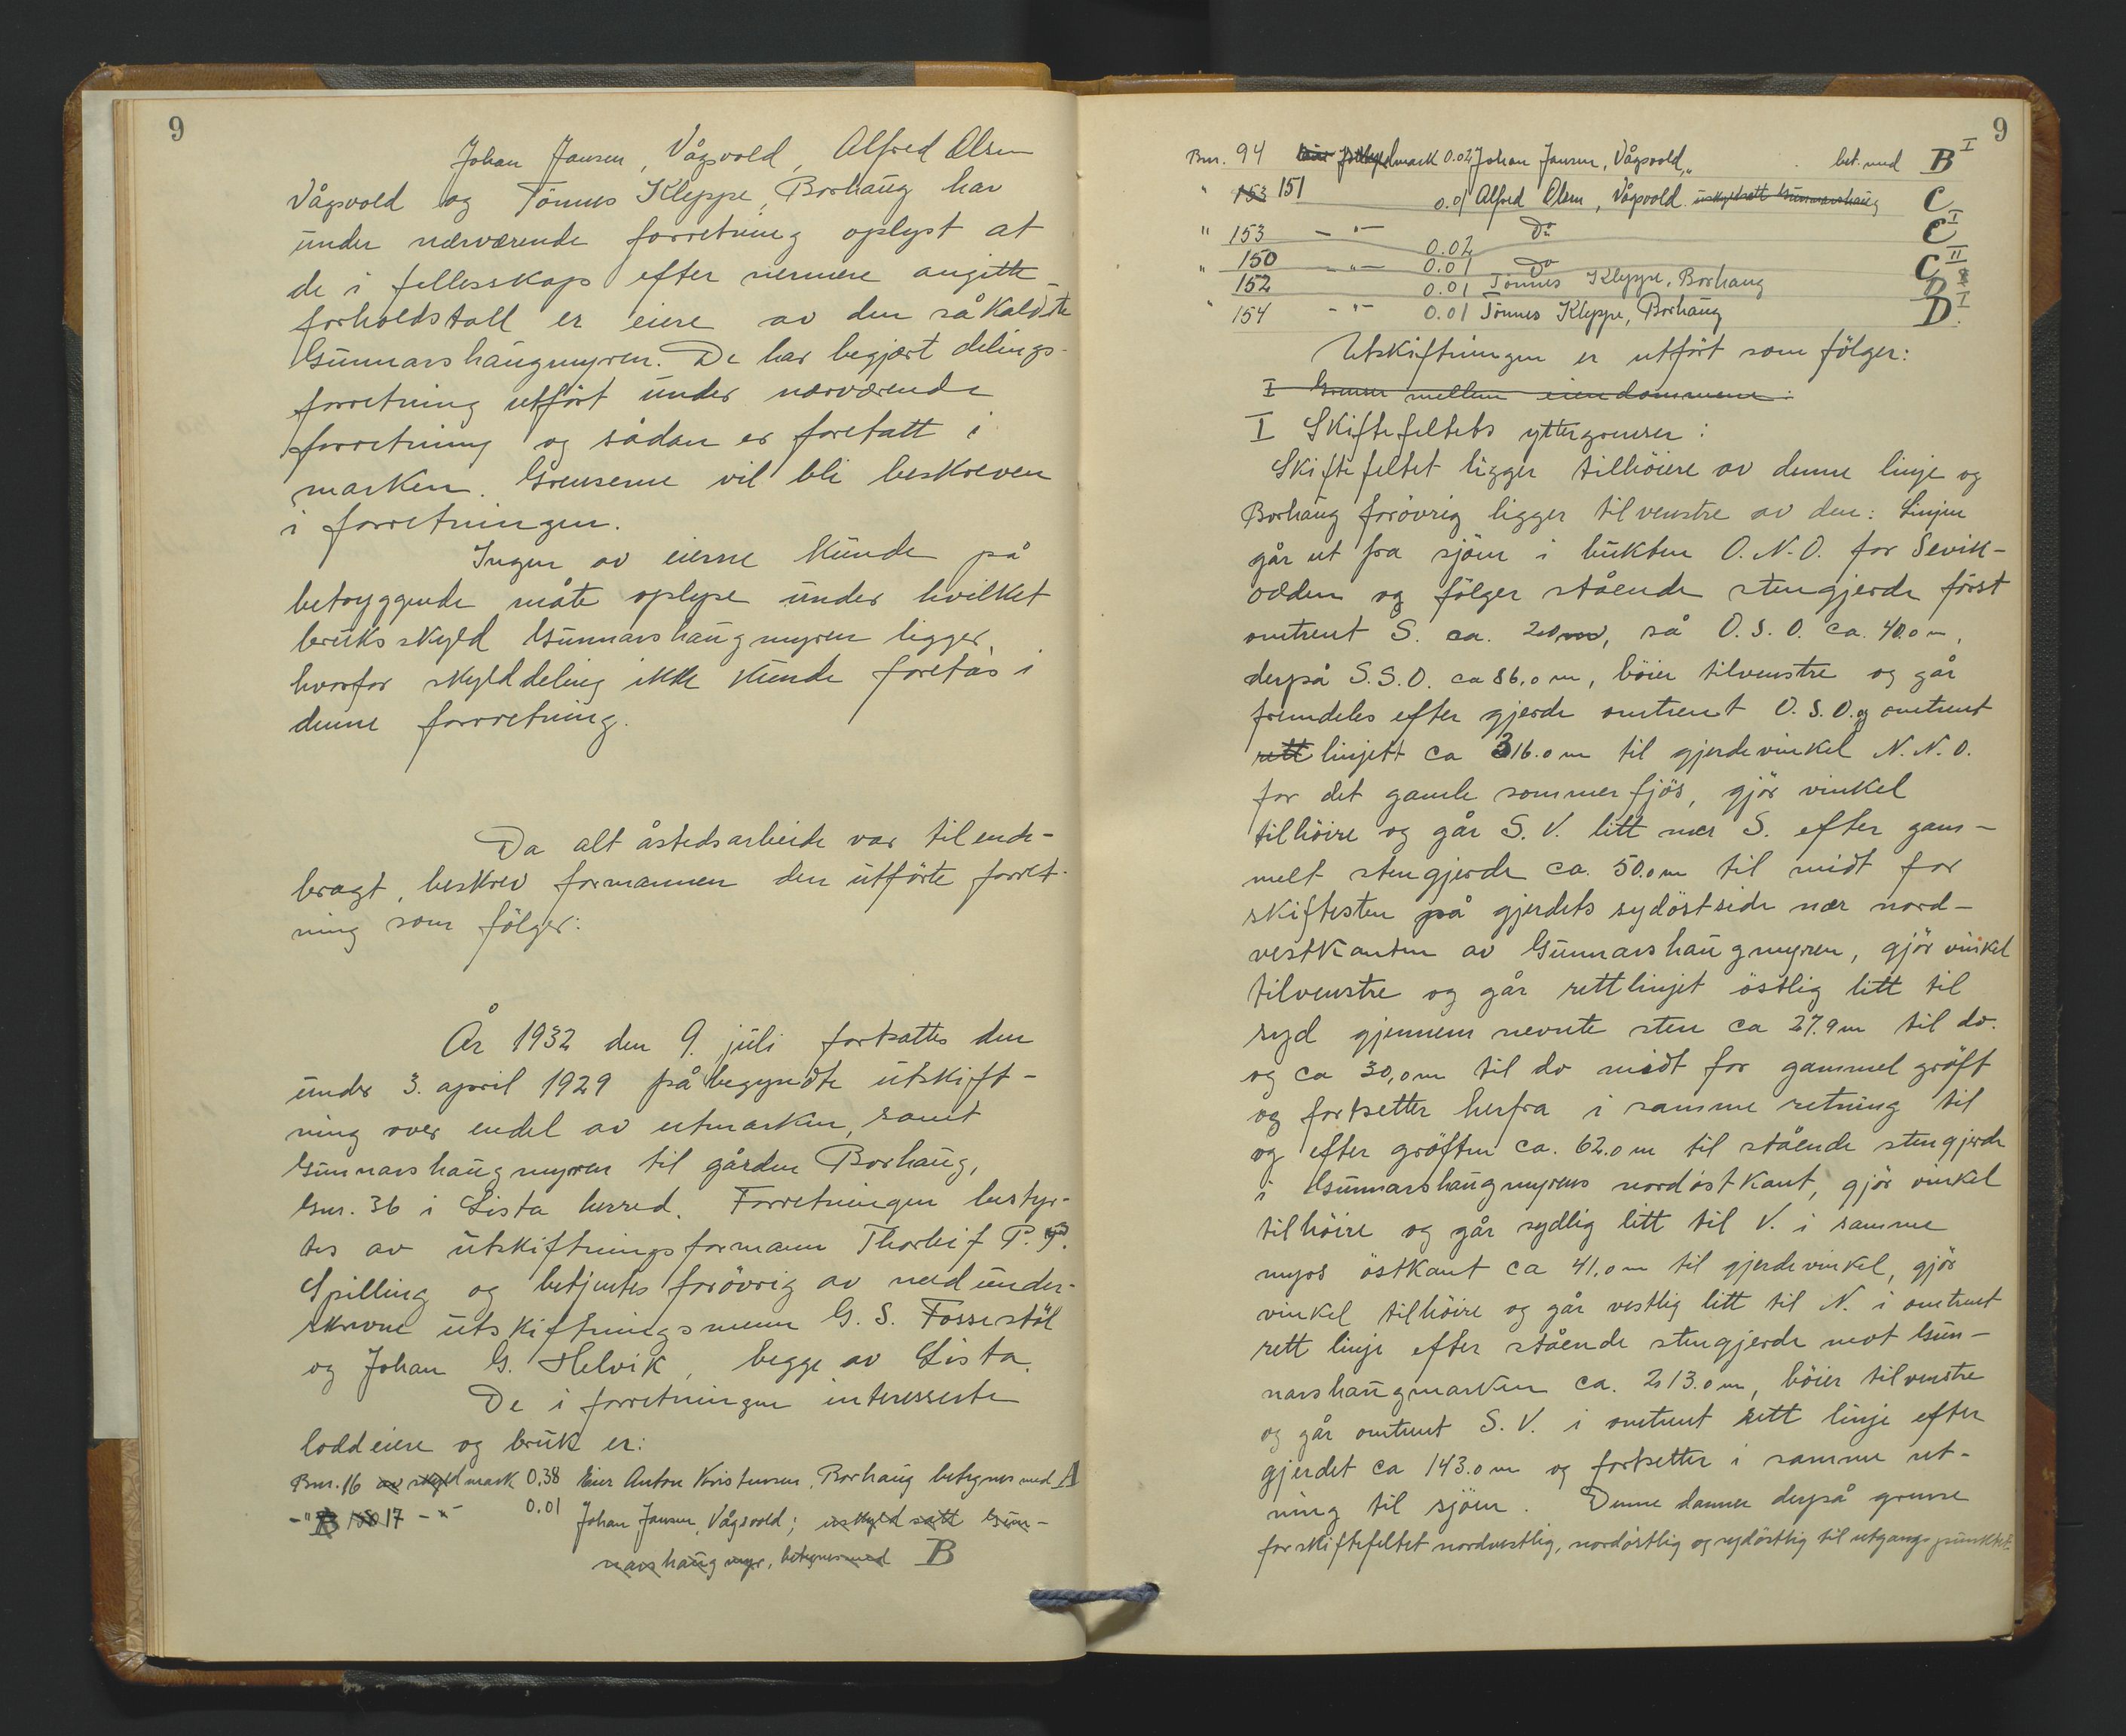 9
Johan Jansen, Vågsvold, Alfred Olsen
Vågsvold og Tönnes Kleppe, Borhaug har
under nærværende forretning oplyst at
de i fellesskap efter nermere angitte
forholdstall er eiere av den såkaldte
Gunnarshaugmyren. De har begjært delings-
forretning utført under nærværende
forretning og sådan er foretatt i
marken. Grensene vil bli beskreven
i forretningen.
Ingen av eierne kunde på
betryggende måte oplyse under hvilket
bruks skyld Gunnarshaugmyren ligger,
hvorfor skylddeling ikke kunde foretas i
denne forrretning.
Da alt åstedsarbeide var tilende-
bragt, beskrev formannen den utförte forret-
ning som fölger:
År 1932 den 9. juli fortsattes den
under 3. april 1929 påbegyndte utskift-
ning over endel av utmarken, samt
Gunnarshaugmyren til gården Borhaug,
Gnr. 36 i Lista herred. Forretningen bestyr-
tes av utskiftningsformann Thorleif P. P.
Spilling og betjentes forövrig av nedunder-
skrevne utskiftningsmenn G. S. Fossestöl
og Johan G. Helvik, begge av Lista.
De i forretningen interesserte
loddeiere og bruk er:
Bnr. 16 av skyld mark 0.38 Eier Anton Kristensen, Borhaug betegnes med A
-"- B 150 17 -"- 0.01 Johan Jansen, Vågsvold; uskyldsatt Gun-
narshaugmyr, betegnes med B
9
Bnr. 94 mark 0.02 Johan Jansen, Vågsvold, bet. med B I
" 153 151 0.01 Alfred Olsen, Vågsvold uskyldsatt Gunnarshaug C
" 153 -"- 0.02 Do C I
" 150 -"- 0.01 Do C II
152 0.01 Tönnes Kleppe, Borhaug D
" 154 -"- 0.01 Tönnes Kleppe, Borhaug D I
Utskiftningen er utfört som fölger:
I Grenser mellem eiendommene:
I Skiftefeltets yttergrenser:
Skiftefeltet ligger tilhöiere av denne linje og
Borhaug forövrig ligger tilvenstre av den: Linjen
går ut fra sjöen i bukten O.N.O. for Sevik-
odden og fölger stående stengjerde först
omtrent S. ca. 20 m, så O.S.O. ca. 40.0 m,
derpå S.S.O. ca 86,0 m, böier tilvenstre og går
fremdeles efter gjerde omtrent O.S.O. og omtrent
rett linjett ca 316.0 m til gjerdevinkel N.N.O.
for det gamle sommerfjös, gjör vinkel
tilhöire og går S.V. litt mer S. efter gam-
melt stengjerde ca. 50.0 m til midt for
skiftesten på gjerdets sydöstside nær nord-
vestkanten av Gunnarshaugmyren, gjör vinkel
tilvenstre og går rettlinjet östlig litt til
syd gjennem nevnte sten ca 27.9 m til do.
og ca 30,0 m til do midt for gammel gröft
og fortsetter herfra i samme retning til
og efter gröften ca. 62.0 m til stående stengjerde
i Gunnarshaugmyrens nordöstkant, gjör vinkel
tilhöire og går sydlig litt til V. i samme
myrs östkant ca 41,0 m til gjerdevinkel, gjör
vinkel tilhöire og går vestlig litt til N. i omtrent
rett linje efter stående stengjerde mot Gun-
narshaugmarken ca. 213.0 m, böier tilvenstre
og går omtrent S.V. i omtrent rett linje efter
gjerdet ca 143.0 m og fortsetter i samme ret-
ning til sjöen. Denne danner derpå grense
for skiftefeltet nordvestlig, nordöstlig og sydöstlig til utgangspunktet.